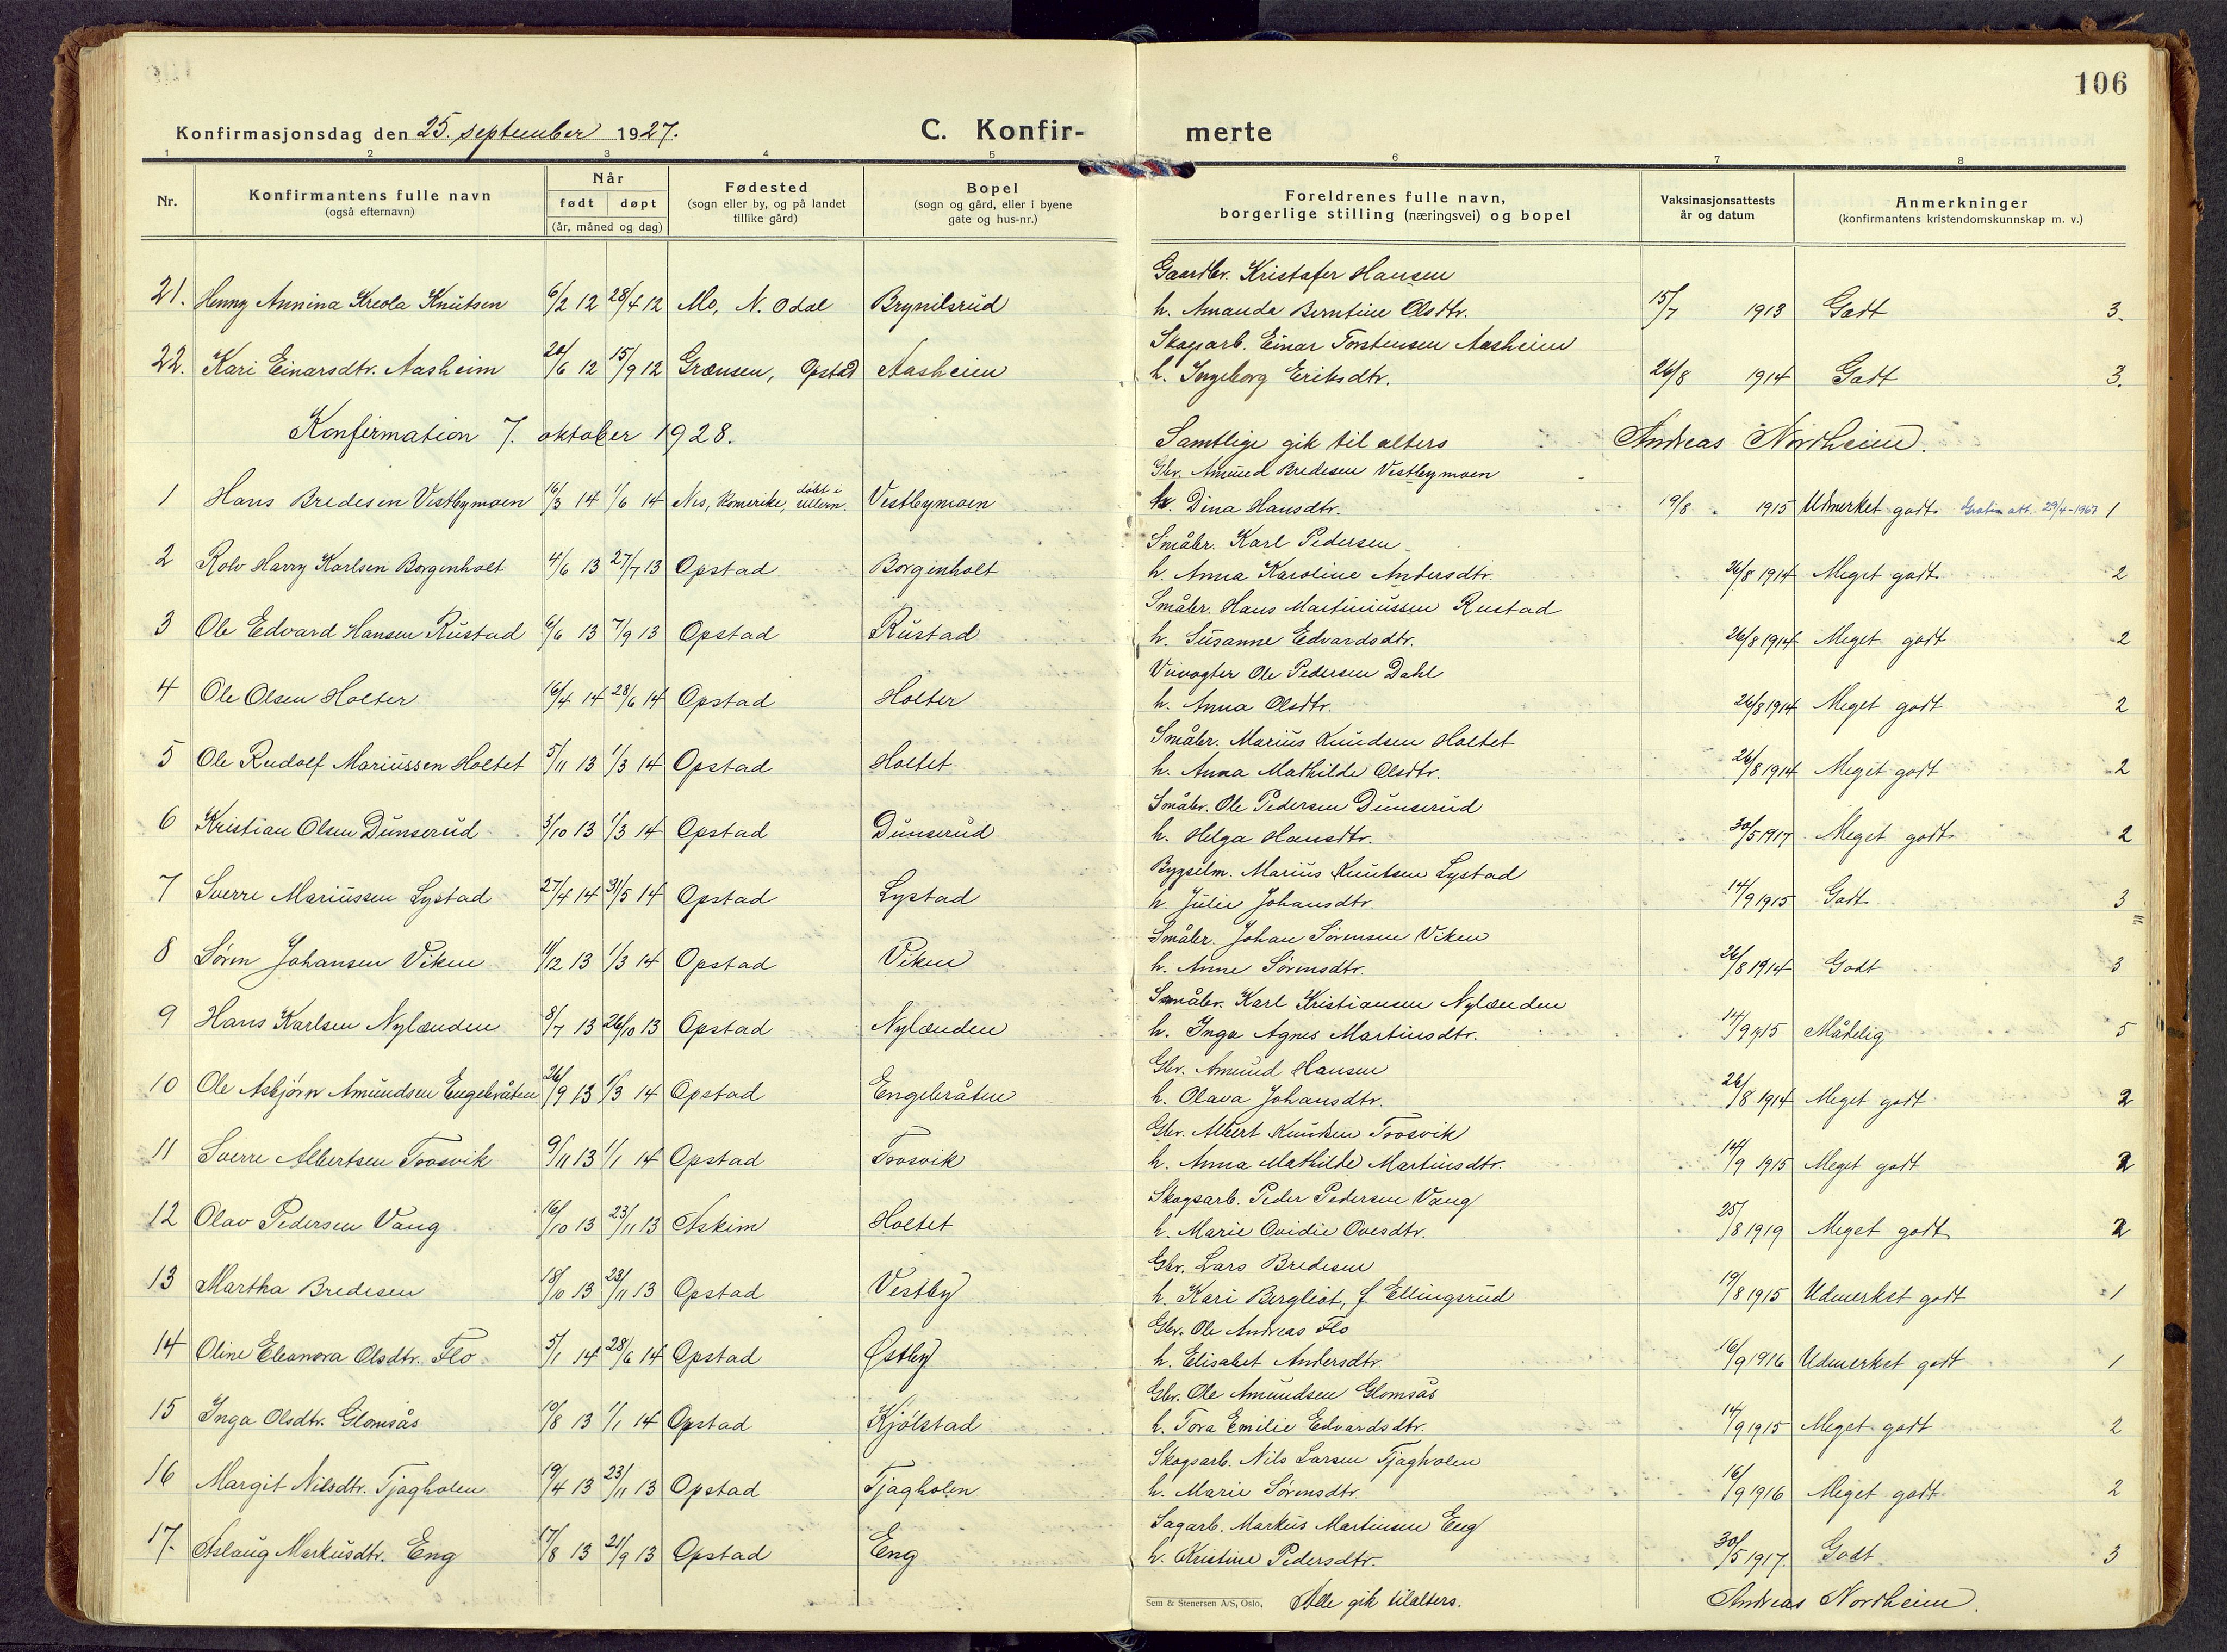 106
Konfirmasjonsdag den 25. september 1927.
C. Konfir-
merte
1 2 3 4 5 6 7 8
Nr.
Konfirmantens fulle navn
(også efternavn)
Når
født døpt
(år, måned og dag)
Fødested
(sogn eller by, og på landet
tillike gård)
Bopel
(sogn og gård, eller i byene
gate og hus-nr.)
Foreldrenes fulle navn,
borgerlige stilling (næringsvei) og bopel
Vaksinasjonsattests
år og datum
Anmerkninger
(konfirmantens kristendomskunnskap m. v.)
Gaardbr. Kristofer Hansen
21. Henny Annina Kreola Knutsen 6/2 12 28/4 12 Mo, N. Odal Brynilsrud h. Amanda Berntine Olsdtr. 15/7 1913 Godt 3.
Skogsarb. Einar Torstensen Aasheim
22. Kari Einarsdtr. Aasheim 20/6 12 15/9 12 Grænsen, Opstad Aasheim h. Ingeborg Eriksdtr. 26/8 1914 Godt 3.
Konfirmation 7. oktober 1928. Samtlige gik til alters Andreas Nordheim.
Gbr. Amund Bredesen Vestbymoen
1 Hans Bredesen Vestbymoen 16/3 14 1/6 14 Nes, Romerike, døbt i Ullern. Vestbymoen h. Dina Hansdtr. 19/8 1915 Udmerket godt. Gratis att. 29/4-1967 1
Småbr. Karl Pedersen
2 Rolv Harry Karlsen Borgenholt 4/6 13 27/7 13 Opstad Borgenholt h. Anna Karoline Andersdtr. 26/8 1914 Meget godt 2
Småbr. Hans Martiniussen Rustad
3 Ole Edvard Hansen Rustad 6/6 13 7/9 13 Opstad Rustad h. Susanne Edvardsdtr. 26/8 1914 Meget godt 2
Veivogter Ole Pedersen Dahl
4 Ole Olsen Holter 16/4 14 28/6 14 Opstad Holter h. Anna Olsdtr. 26/8 1914 Meget godt 2
Småbr. Marius Knudsen Holtet
5 Ole Rudolf Mariussen Holtet 5/11 13 1/3 14 Opstad Holtet h. Anna Mathilde Olsdtr. 26/8 1914 Meget godt 2
Småbr. Ole Pedersen Dunserud
6 Kristian Olsen Dunserud 3/10 13 1/3 14 Opstad Dunserud h. Helga Hansdtr. 30/5 1917 Meget godt 2
Bygselm. Marius Knutsen Lystad
7 Sverre Mariussen Lystad 27/4 14 31/5 14 Opstad Lystad h. Julie Johansdtr. 14/9 1915 Godt 3
Småbr. Johan Sørensen Viken
8 Søren Johansen Viken 11/12 13 1/3 14 Opstad Viken h. Anne Sørensdtr. 26/8 1914 Godt 3
Småbr. Karl Kristiansen Nylænden
9 Hans Karlsen Nylænden 8/7 13 26/10 13 Opstad Nylænden h. Inga Agnes Martinsdtr. 14/9 1915 Måtelig 5
Gbr. Amund Hansen
10 Ole Asbjørn Amundsen Engebråten 26/9 13 1/3 14 Opstad Engebråten h. Olava Johansdtr. 26/8 1914 Meget godt 2
Gbr. Albert Knudsen Trosvik
11 Sverre Albertsen Trosvik 9/11 13 1/1 14 Opstad Trosvik h. Anna Mathilde Martinsdtr. 14/9 1915 Meget godt 2
Skogsarb. Peder Pedersen Vang
12 Olav Pedersen Vang 16/10 13 23/11 13 Askim Holtet h. Marie Ovidie Ovesdtr. 25/8 1919 Meget godt 2
Gbr. Lars Bredesen
13 Martha Bredesen 18/10 13 23/11 13 Opstad Vestby h. Kari Bergliot, f. Ellingsrud 19/8 1915 Udmerket godt 1
Gbr. Ole Andreas Flo
14 Oline Eleonora Olsdtr. Flo 5/1 14 28/6 14 Opstad Østby h. Elisabet Andersdtr. 16/9 1916 Udmerket godt 1
Gbr. Ole Amundsen Glomsås
15 Inga Olsdtr. Glomsås 10/8 13 1/1 14 Opstad Kjølstad h. Tora Emilie Edvardsdtr. 14/9 1915 Meget godt 2
Skogsarb. Nils Larsen Tjagholen
16 Margit Nilsdtr. Tjagholen 19/4 13 23/11 13 Opstad Tjagholen h. Marie Sørensdtr. 16/9 1916 Meget godt 2
Sagarb. Markus Martinsen Eng
17. Aslaug Markusdtr. Eng 17/8 13 21/9 13 Opstad Eng h. Kristine Pedersdtr. 30/5 1917. Godt 3
Sem & Stenersen A/S, Oslo. Alle gik tilalters. Andreas Nordheim.